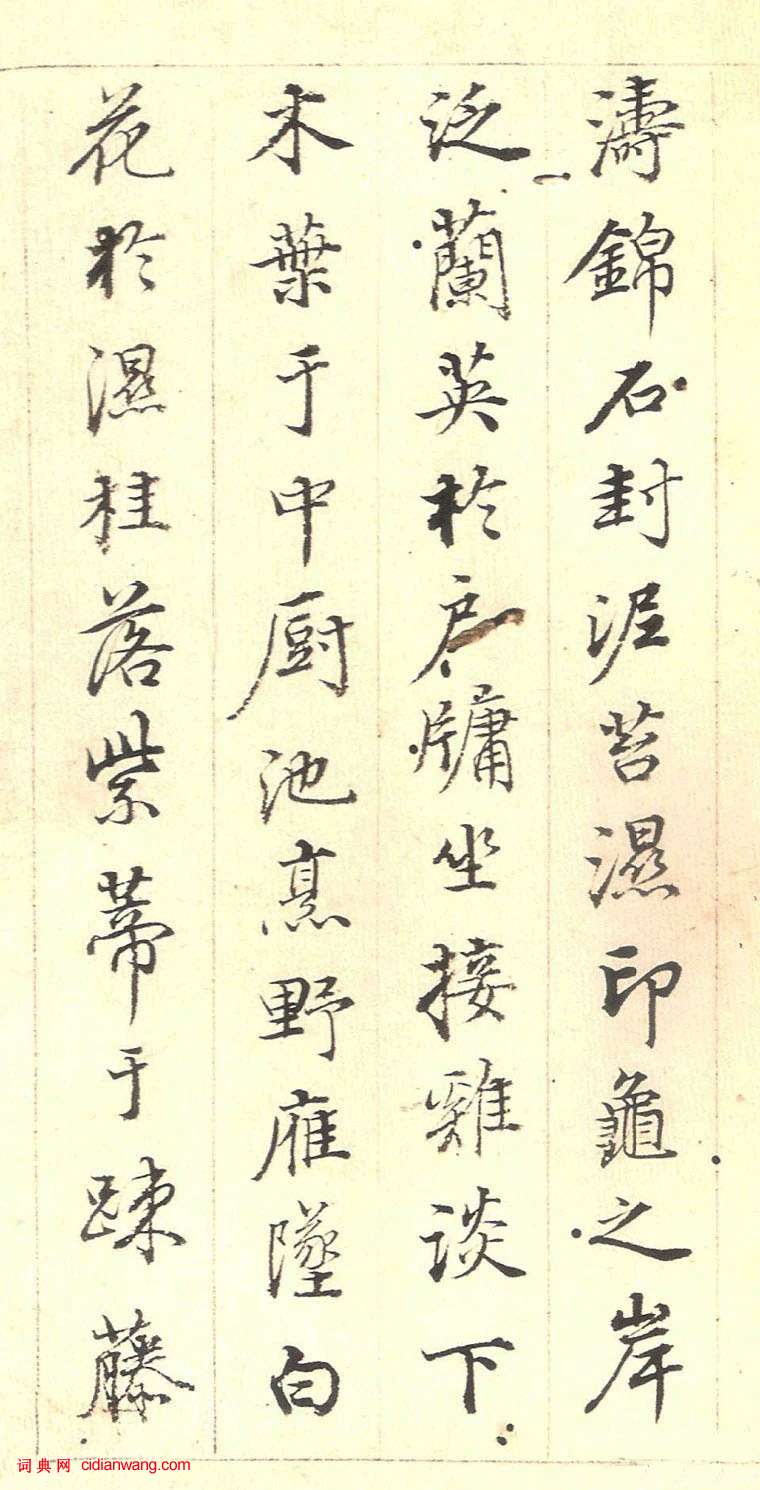 濤錦石封泥苔濕印龜之岸
泛蘭英於戶牖坐接雞談下
木葉于中厨池烹野雁墜白
花於濕桂落紫蔕于疎藤
词典网 cidianwang.com